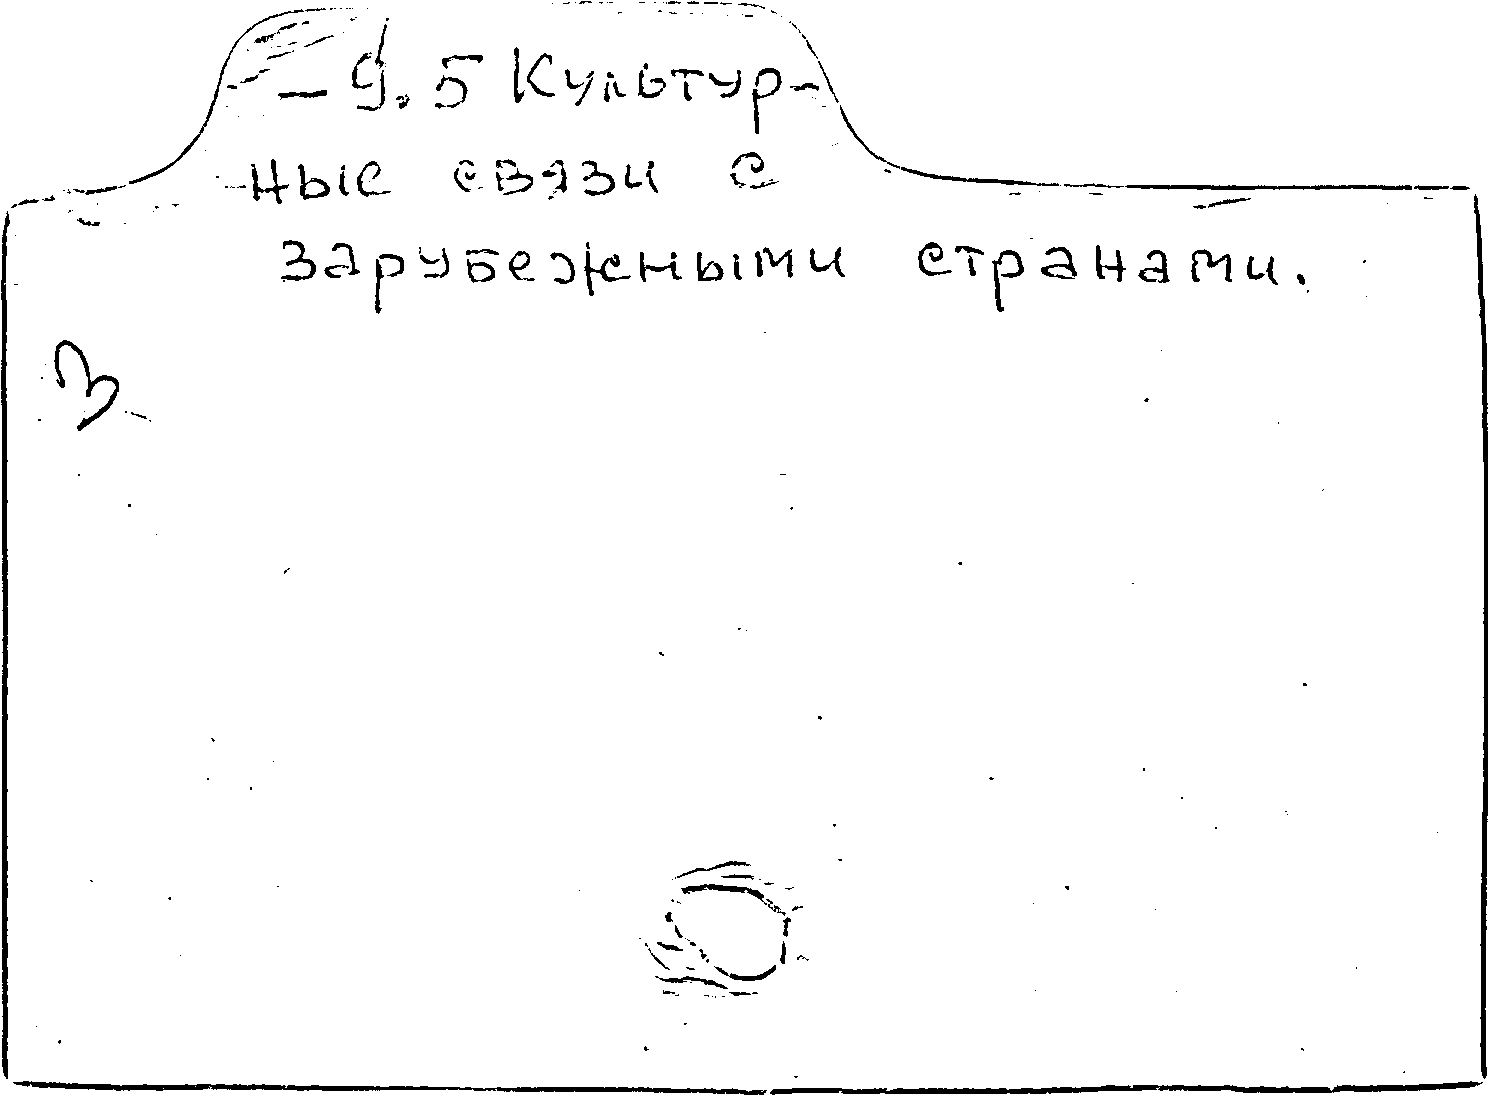 -9.5 Культур-
ные связи с
зарубежными странами.